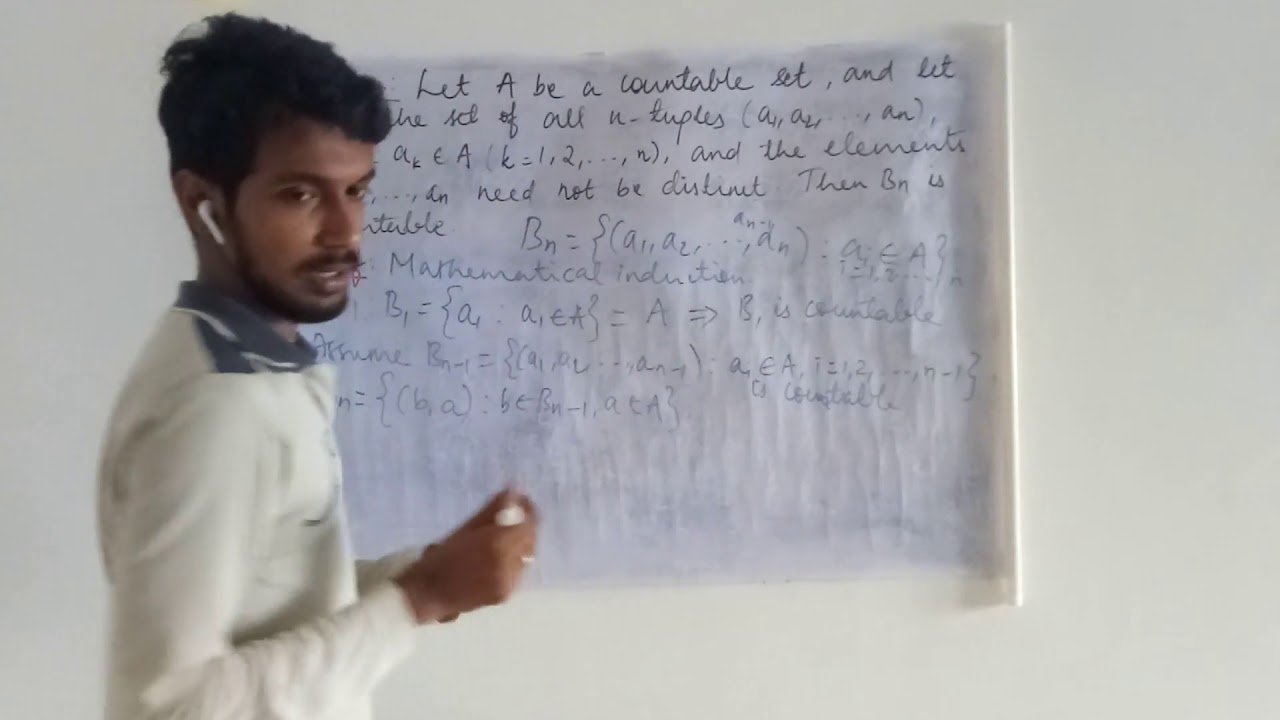 : Let A be a countable set, and let
the set of all n-tuples (a1, a2, ..., an),
ak ∈ A (k=1,2,...,n), and the elements
,..., an need not be distinct. Then Bn is
ntable. Bn = {(a1, a2, ..., an-1, an) : ai ∈ A, i=1,2,...,n}
: Mathematical induction.
: B1 = {a1 : a1 ∈ A} = A ⇒ B1 is countable
Assume Bn-1 = {(a1, a2 ..., an-1) : ai ∈ A, i=1,2,...,n-1}
is countable
n = {(b, a) : b ∈ Bn-1, a ∈ A}.